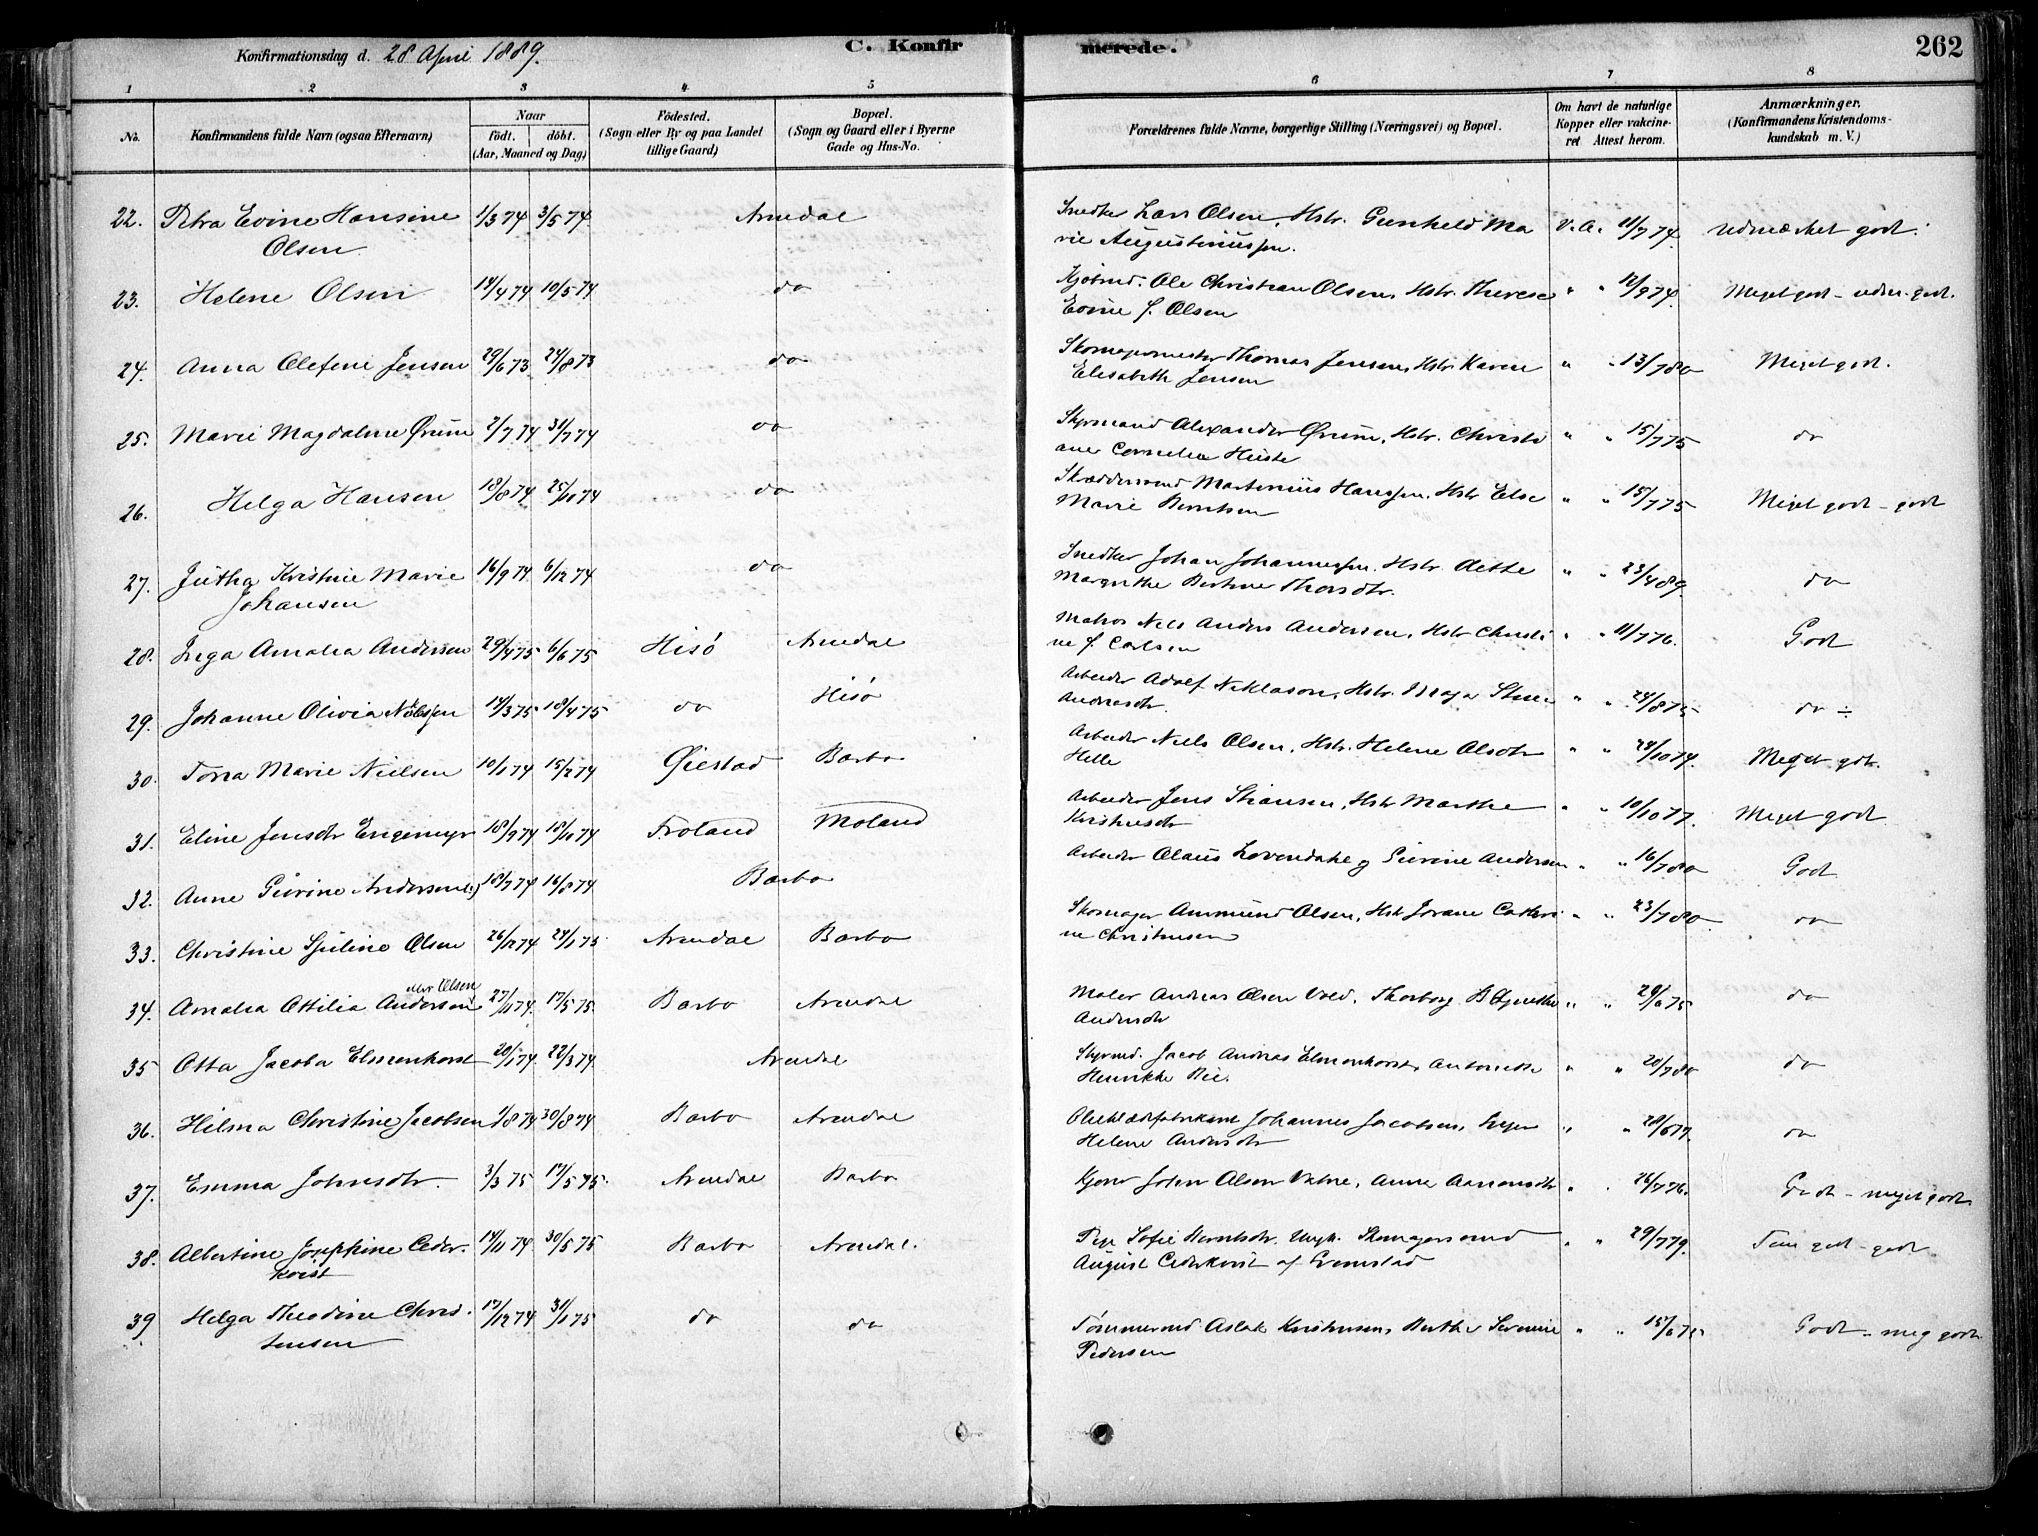 Konfirmationsdag d. 28 April 1889.
C. Konfirmerede.
262
1 2 3 4 5 6 7 8
No.
Konfirmandens fulde Navn (ogsaa Efternavn)
Naar
født. døbt.
(Aar, Maaned og Dag)
Fødested.
(Sogn eller By og paa Landet
tillige Gaard)
Bopæl.
(Sogn og Gaard eller i Byerne
Gade og Hus-No.
Forældrenes fulde Navne, borgerlige Stilling (Næringsvei) og Bopæl.
Om havt de naturlige
Kopper eller vakcine-
ret Attest herom.
Anmærkninger.
(Konfirmandens Kristendoms-
kundskab m. V.)
22. Petra Evine Hansine 1/3 74 3/5 74. Arendal Snedker Lars Olsen, Hstr. Gunhild Ma V. A. 11/7 74. udmærket godt.
Olsen rie Augustinussen.
23. Helene Olsen 14/4 74 10/5 74 do Kjøbmd. Ole Christian Olsen, Hstr. Therese " " 12/9 74. Meget godt - udm. godt.
Evine f. Olsen
24. Anna Olefine Jensen 29/6 73 24/8 73 do Skomagermester Thomas Jensen, Hstr. Karen " " 13/7 80 Meget godt.
Elisabeth Jensen
25. Marie Magdalene Ørum 2/7 74 31/7 74 do Styrmand Alexander Ørum, Hstr. Christi " " 15/7 75 do
ane Cornelia
26. Helga Hansen 18/8 74 25/10 74 do Skræddersvend Martinius Hanssen, Hstr Else " " 15/7 75 Meget godt - godt
Marie Berntsen
27. Jutha Kristine Marie 16/9 74 6/12 74 do Snedker Johan Johannessen, Hstr. Aette " " 23/4 89 do
Johansen Margrethe Bertine Thorsdtr.
28. Inga Amalia Andersen 29/4 75 6/6 75 Hisø Arendal Matros Nils Anders Andersen, Hstr Christi " " 11/7 76. Godt
ne f. Carlsen
29. Johanne Olivia Nilssen 14/3 75 18/4 75 do Hisø Arbeider Adolf Niklason, Hstr. Maja Stina " " 24/8 75 do ÷
Andreasdtr.
30. Tona Marie Nielsen 10/1 74 15/2 74 Øiestad Barbo Arbeider Niels Olsen, Hstr. Helene Olsdtr " " 28/10 74. Meget godt.
Helle
31. Eline Jensdtr Engemyr 18/9 74 18/10 74 Froland Moland Arbeider Jens Stiansen, Hstr Marthe " " 10/10 77. Meget godt.
Kristensdtr
32. Anne Gurine Andersen 18/7 74 16/8 74 Barbo Arbeider Olaus Lovendahl og Gurine Andersen " " 16/7 80 Godt
33. Christine Juline Olsen 26/12 74 24/1 75 Arendal Barbo Skomager Ammund Olsen, Hstr Jorane Cathri " " 23/7 80. do
ne Christensen
34. Amalia Ottilia Andersen eller Olsen 27/11 74 17/5 75. Barbo Arendal Maler Andreas Olsen Vold, Thorborg B Agnethe " " 29/6 75 do
Andersdtr
35 Otta Jacoba Elmenhorst 20/1 74 22/3 74 Arendal Styrmd. Jacob Andreas Elmenhorst, Antonette " " 20/7 80 do
Henrikke Bie.
36. Hilma Christine Jacobsen 1/8 74 30/8 74 Barbo Arendal Olieklædfabrikant Johannes Jacobsen, Inger " " 28/6 77. do
Helene Andersdtr
37. Emma Johnsdtr. 3/3 75 17/5 75. Arendal Barbo John Olsen Vatne, Anna Aanonsdtr " . 26/7 76. Godt - meget godt.
38. Albertine Josephine Ceder- 14/11 74 30/5 75 Barbo Arendal. Pige Sofie Berntsdtr, Ungk. Skomagersvend " " 29/7 79. Tem godt - godt
kvist August Cederkvist af Grimstad
39 Helga Theodine Chris- 17/12 74 31/1 75 do do Tømmermd Aslak Kristensen, Berthe Severine " " 15/6 75 Godt - meg godt
tensen Pedersen